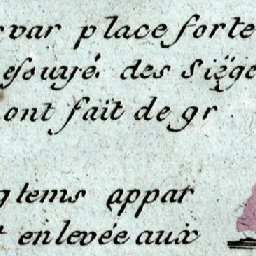 var place forte
esouyé. des Siège
ont fait de gr
gtems appar
enlevée aux